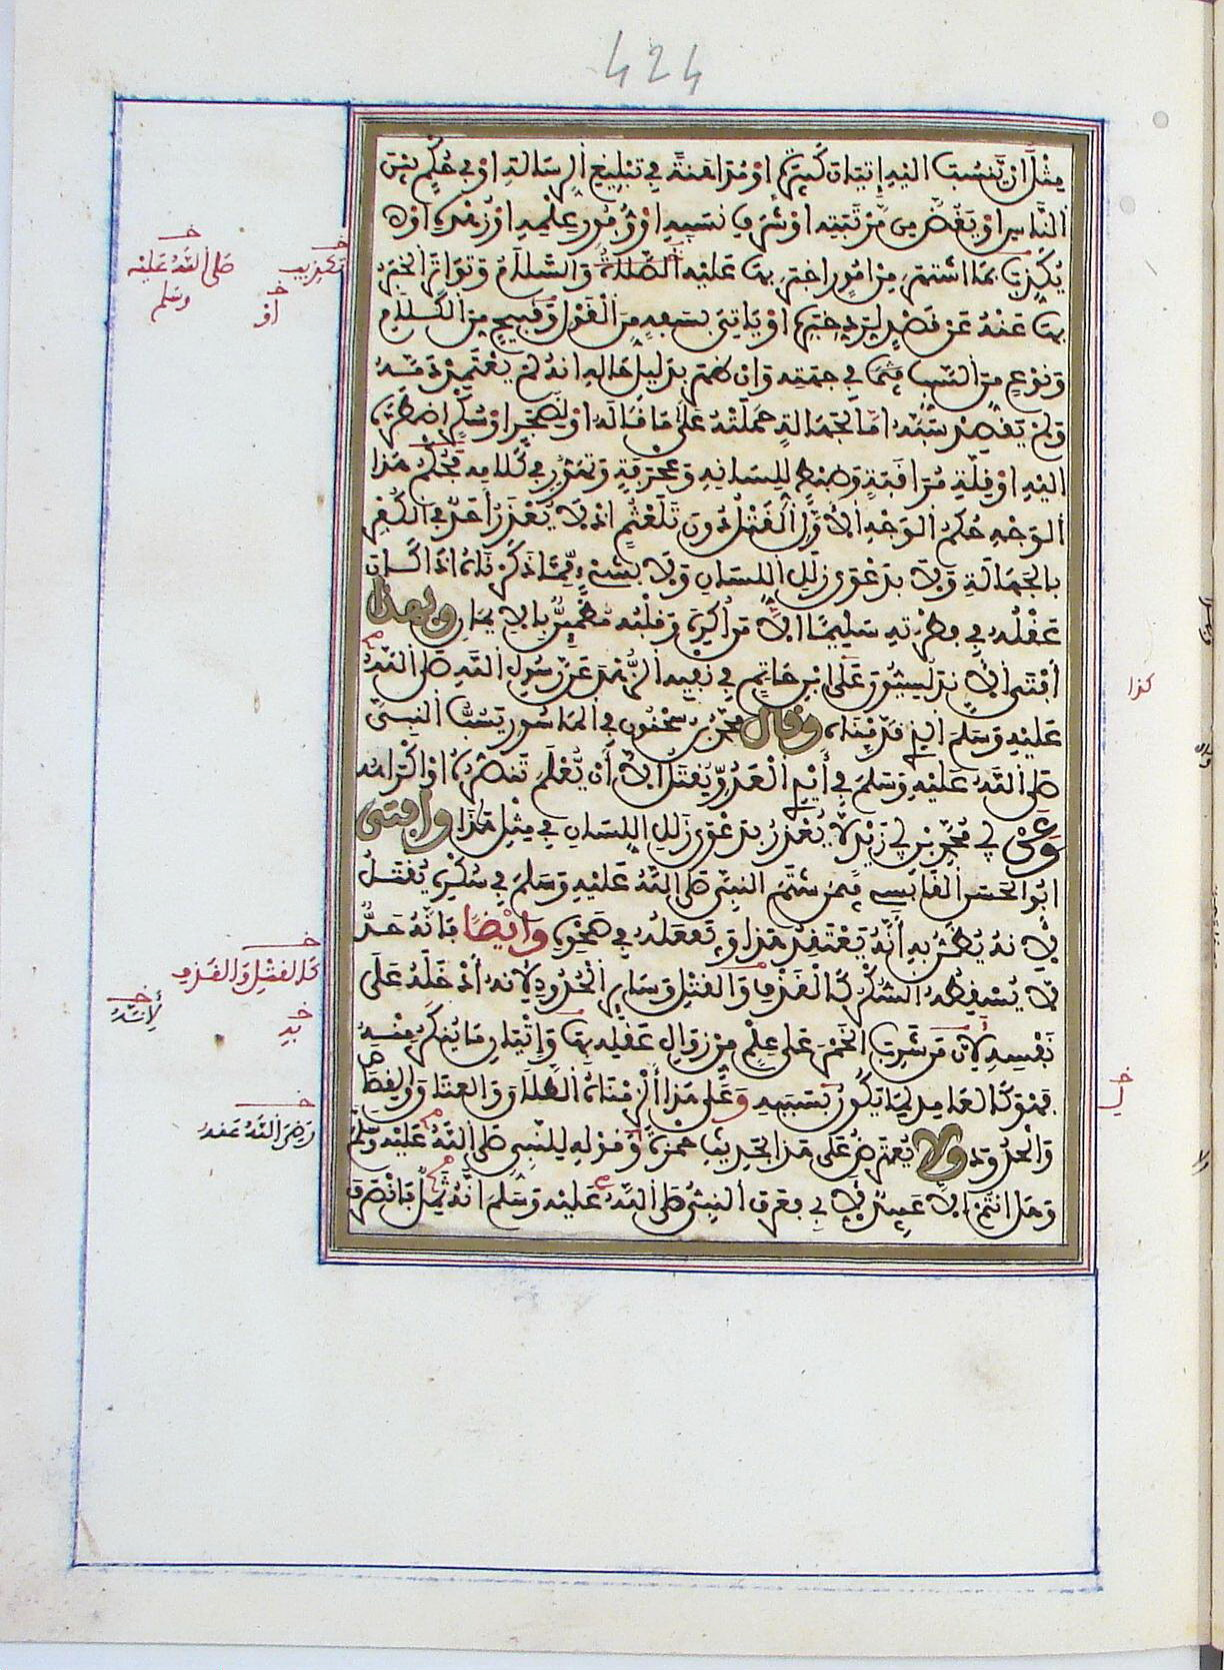 424
مِثْلَ أَنْ يَّنْسُبَ إِلَيْهِ إِتْيَانَ كَبِيرَةٍ أَوْ مُدَاهَنَةً فِي تَبْلِيغِ الرِّسَالَةِ أَوْ فِي حُكْمٍ بَيْنَ
النَّاسِ أَوْ يَغُضَّ مِن مَّرْتَبَتِهِ أَوْ شَرَفِ نَسَبِهِ أَوْ وُفُورِ عِلْمِهِ أَوْ زُهْدِهِ أَوْ
يُكَذِّبَ بِمَا اشْتَهَرَ مِنْ أُمُورٍ أَخْبَرَ بِهَا عَلَيْهِ الصَّلَاةُ وَالسَّلَامُ وَتَوَاتَرَ الْخَبَرُ
بِهَا عَنْهُ عَنْ قَصْدٍ لِرَدِّ خَبَرِهِ أَوْ يَاتِيَ بِسَفَهٍ مِنَ الْقَوْلِ وَقَبِيحٍ مِنَ الْكَلَامِ
وَنَوْعٍ مِنَ السَّبِّ فِي جِهَتِهِ وَإِنْ ظَهَرَ بِدَلِيلِ حَالِهِ أَنَّهُ لَمْ يَعْتَمِدْ ذَمَّهُ
وَلَمْ يَقْصِدْ سَبَّهُ إِمَّا لِجَهَالَةٍ حَمَلَتْهُ عَلَى مَا قَالَهُ أَوْ لِضَجَرٍ أَوْ سُكْرٍ اضْطَرَّهُ
إِلَيْهِ أَوْ قِلَّةِ مُرَاقَبَةٍ وَضَبْطٍ لِلِسَانِهِ وَعَجْرَفَةٍ وَتَهَوُّرٍ فِي كَلَامِهِ فَحُكْمُ هَذَا
الْوَجْهِ حُكْمُ الْوَجْهِ الْأَوَّلِ الْقَتْلُ دُونَ تَلَعْثُمٍ إِذْ لَا يُعْذَرُ أَحَدٌ فِي الْكُفْرِ
بِالْجَهَالَةِ وَلَا بِدَعْوَى زَلَلِ اللِّسَانِ وَلَا بِشَيْءٍ مِّمَّا ذَكَرْنَاهُ إِذَا كَانَ
عَقْلُهُ فِي فِطْرَتِهِ سَلِيمًا إِلَّا مَنْ أُكْرِهَ وَقَلْبُهُ مُطْمَئِنٌّ بِالْإِيمَانِ وَبِهَذَا
أَفْتَى الْأَنْدَلُسِيُّونَ عَلَى ابْنِ حَاتِمٍ فِي نَفْيِهِ الزُّهْدَ عَنْ رَسُولِ اللَّهِ صَلَّى اللَّهُ
عَلَيْهِ وَسَلَّمَ الَّذِي قَدَّمْنَاهُ وَقَالَ مُحَمَّدُ بْنُ سَحْنُونٍ فِي الْمَاسُورِ يَسُبُّ النَّبِيَّ
صَلَّى اللَّهُ عَلَيْهِ وَسَلَّمَ فِي أَيْدِي الْعَدُوِّ يُقْتَلُ إِلَّا أَنْ يُّعْلَمَ تَنَصُّرُهُ أَوْ إِكْرَاهُهُ
وَعَنْ أَبِي مُحَمَّدِ بْنِ أَبِي زَيْدٍ لَا يُعْذَرُ بِدَعْوَى زَلَلِ اللِّسَانِ فِي مِثْلِ هَذَا وَأَفْتَى
أَبُو الْحَسَنِ الْقَابِسِي فِيمَنْ شَتَمَ النَّبِيَّ صَلَّى اللَّهُ عَلَيْهِ وَسَلَّمَ فِي سُكْرِهِ يُقْتَلُ
لِأَنَّهُ يُظَنُّ بِهِ أَنَّهُ يَعْتَقِدُ هَذَا وَيَفْعَلُهُ فِي صَحْوِهِ وَأَيْضًا فَإِنَّهُ حَدٌّ
لَا يُسْقِطُهُ السُّكْرُ كَالْقَذْفِ وَالْقَتْلِ وَسَايِرِ الْحُدُودِ لِأَنَّهُ أَدْخَلَهُ عَلَى
نَفْسِهِ لِأَنَّ مَنْ شَرِبَ الْخَمْرَ عَلَى عِلْمٍ مِنْ زَوَالِ عَقْلِهِ بِهَا وَإِتْيَانِ مَا يُنْكَرُ مِنْهُ
فَهُوَ كَالْعَامِدِ لِمَا يَكُونُ بِسَبَبِهِ وَعَلَى هَذَا أَلْزَمْنَاهُ الطَّلَاقَ وَالْعِتَاقَ وَالْقِصَاصَ
وَالْحُدُودَ وَلَا يُعْتَرَضُ عَلَى هَذَا بِحَدِيثِ حَمْزَةَ وَقَوْلِهِ لِلنَّبِيِّ صَلَّى اللَّهُ عَلَيْهِ وَسَلَّمَ
وَهَلْ أَنْتُمْ إِلَّا عَبِيدٌ لِأَبِي فَعَرَفَ النَّبِيُّ صَلَّى اللَّهُ عَلَيْهِ وَسَلَّمَ أَنَّهُ ثَمِلٌ فَانْصَرَفَ
تكذيب
صَلَّى اللَّهُ عَلَيْهِ
وسلم
أَوْ
كذا
كَالْقَتْلِ وَالْقَذْفِ
لِأَنَّهُ
بِهِ
لِ
رَضِيَ اللَّهُ عَنْهُ